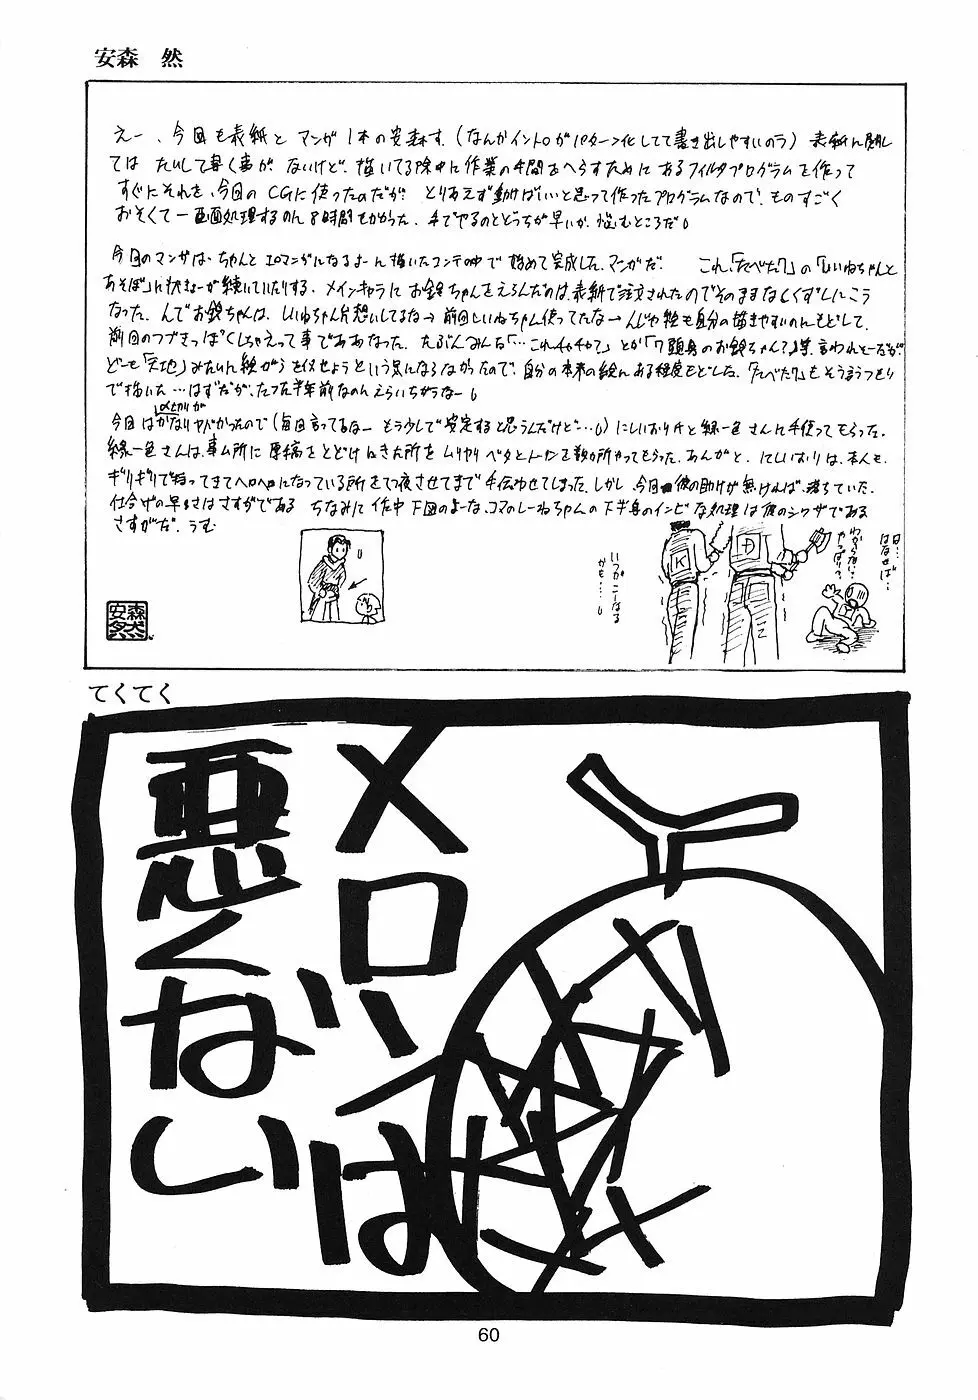 安森 然
えー、今回も表紙と マンガ1本の安森す。(なんかイントロがパターン化してて書き出しやすいのう) 表紙に関し
ては たいして書く事が ないけど、描いてる際中に作業の手間をへらすために あるフィルタプログラムを作って
すぐにそれを、今回の CGに使ったのだが とりあえず動けばいいと思って作ったプログラムなので、ものすごく
おそくて一画面処理するのに8時間もかかった。手でやるのとどっちが早いか、悩むところだ
今回のマンガは、ちゃんと エロマンガになるよーに描いたコンテの中で 始めて完成した、マンガだ。 これ、「たべた?」の「しいねちゃんと
あそぼ」に 続いていたりする。メインキャラに お鈴ちゃんをえらんだのは、表紙で注文されたのでそのままなしくずしにこう
なった。んでお鈴ちゃんは、しいねちゃん片想いしてるな→前回しいねちゃん使ってたな→んじゃ絵も自分の描きやすいのにもどして、
前回のつづきっぽくしちゃえって事でああなった。たぶんみんな「…これチャチャ?」とか「7頭身のお鈴ちゃん?」 言われそーだが
どーも「天地」みたいに絵がうを似せようという気にならなかったので、自分の本来の絵に ある程度もどした。「たべた?」もそうするつもり
で描いた…はずだが、たった半年前なのにえらいちがうなー
〆切りが
今回はかなりヤバかったので(毎回言ってるなー もう少しで安定すると思うんだけど…)にしいおりAと緑一色 さんに手伝ってもらった。
緑一色さんは、事ム所に 原稿をとどけにきた所を ムリヤリ ベタとトーンを数か所やってもらった。ありがと、にしいおりは、本人も
ギリギリで持ってきてヘロヘロになっている所をてつ夜させてまで手伝わせてしまった。しかし、今回彼の助けが無ければ、落ちていた。
仕上げの早さはさすがである ちなみに 作中 下図のよーな、コマのしーねちゃんの下半身のインビな処理は彼のシワザである
さすがだ。うむ
いつかこーなる
かも…
K
D
Z
わからない…
やっぱり?
はなせば…
安森
然
てくてく
メロンは
悪くない
60